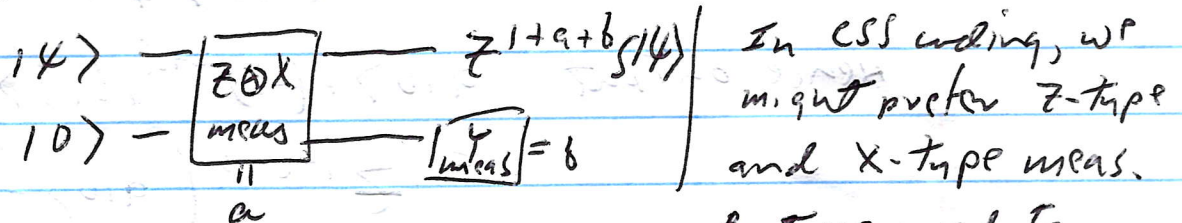 |ψ⟩ Z⊗X meas = a Z^{1+a+b} S|ψ⟩
|0⟩ Y meas = b
In CSS coding, we
might prefer Z-type
and X-type meas.